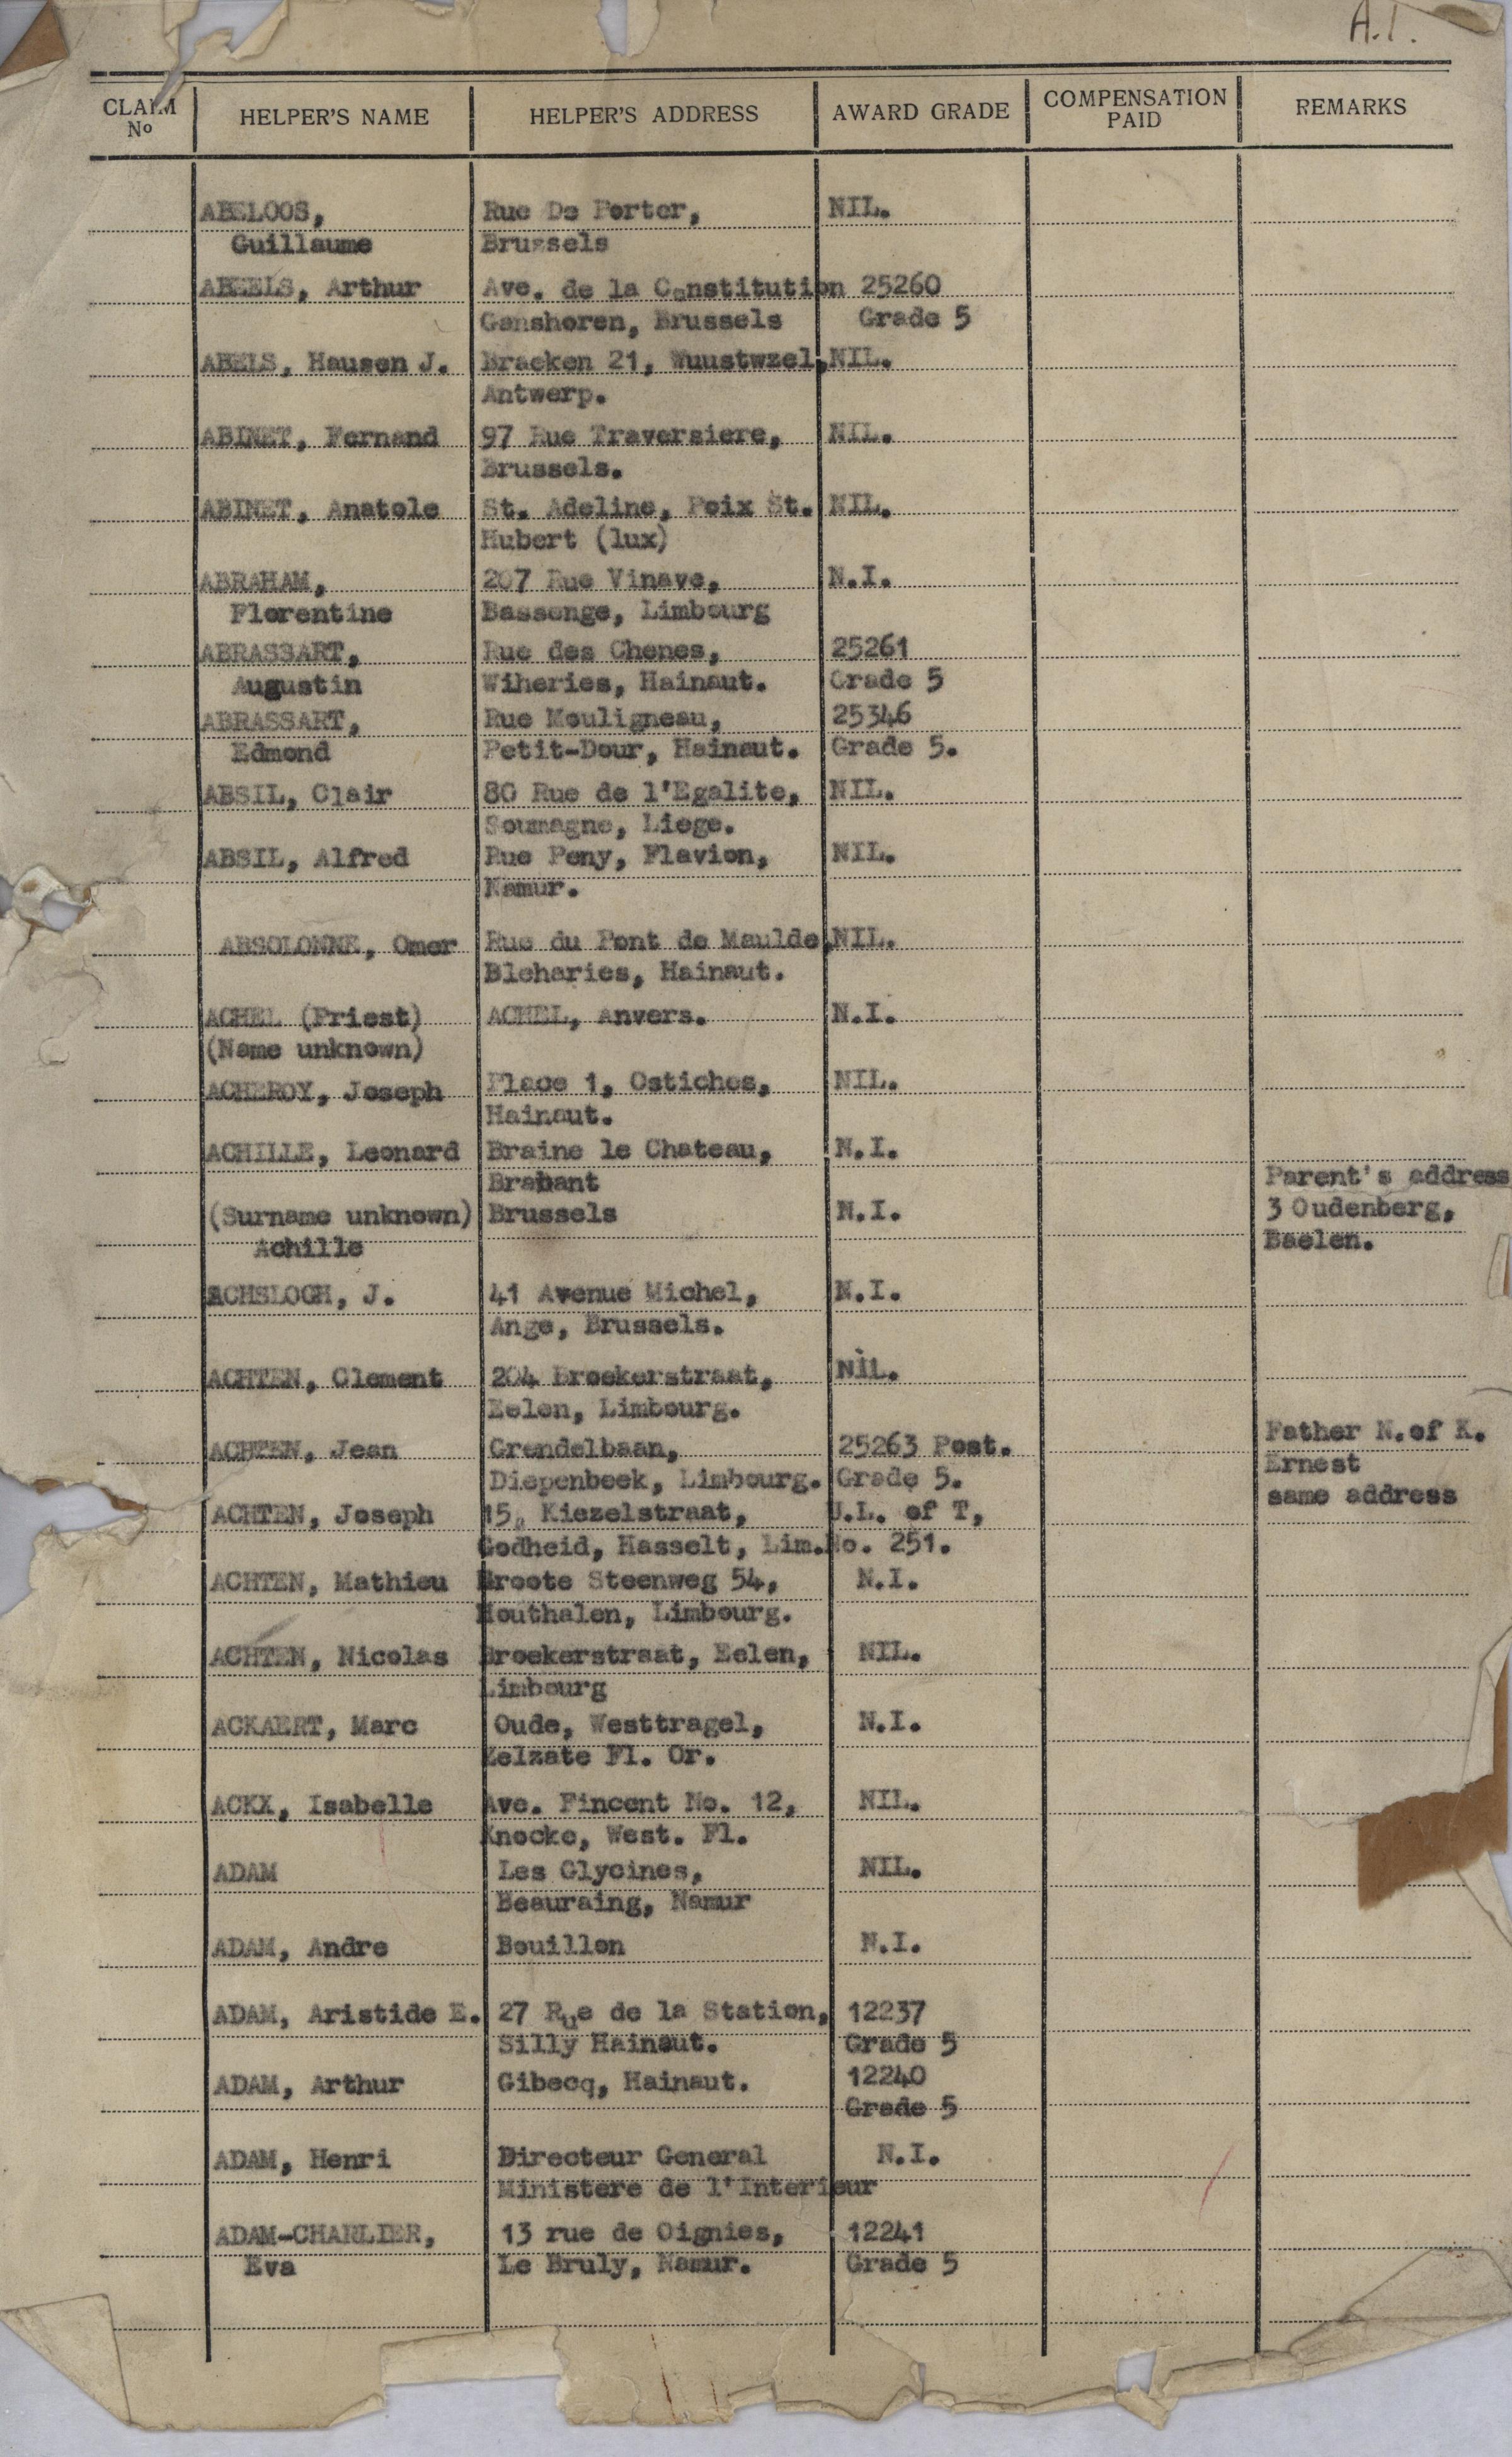 A.1.
CLAIM No HELPER'S NAME HELPER'S ADDRESS AWARD GRADE COMPENSATION PAID REMARKS
ABELOOS, Rue De Porter, NIL.
Guillaume Brussels
ABEELS, Arthur Ave. de la Constitution 25260
Ganshoren, Brussels Grade 5
ABELS, Hausen J. Bracken 21, Wuustwzel, NIL.
Antwerp.
ABINET, Fernand 97 Rue Traversiere, NIL.
Brussels.
ABINET, Anatole St. Adeline, Poix St. NIL.
Hubert (lux)
ABRAHAM, 207 Rue Vinave, N.I.
Florentine Bassenge, Limbourg
ABRASSART, Rue des Chenes, 25261
Augustin Wiheries, Hainaut. Grade 5
ABRASSART, Rue Mouligneau, 25346
Edmond Petit-Dour, Hainaut. Grade 5.
ABSIL, Clair 80 Rue de l'Egalite, NIL.
Soumagne, Liege.
ABSIL, Alfred Rue Peny, Flavion, NIL.
Namur.
ABSOLONNE, Omer Rue du Pont de Maulde, NIL.
Bleharies, Hainaut.
ACHEL (Priest) ACHEL, Anvers. N.I.
(Name unknown)
ACHEROY, Joseph Place 1, Ostiches, NIL.
Hainaut.
ACHILLE, Leonard Braine le Chateau, N.I.
Brabant Parent's address
(Surname unknown) Brussels N.I. 3 Oudenberg,
Achille Baelen.
ACHSLOGH, J. 41 Avenue Michel, N.I.
Ange, Brussels.
ACHTEN, Clement 204 Broekerstraat, NIL.
Eelen, Limbourg.
ACHTEN, Jean Grendelbaan, 25263 Post. Father N.of K.
Diepenbeek, Limbourg. Grade 5. Ernest
same address
ACHTEN, Joseph 15, Kiezelstraat, U.L. of T,
Godheid, Hasselt, Lim. No. 251.
ACHTEN, Mathieu Groote Steenweg 54, N.I.
Houthalen, Limbourg.
ACHTEN, Nicolas Broekerstraat, Eelen, NIL.
Limbourg
ACKAERT, Marc Oude, Westtragel, N.I.
Zelzate Fl. Or.
ACKX, Isabelle Ave. Fincent No. 12, NIL.
Knocke, West. Fl.
ADAM Les Glycines, NIL.
Beauraing, Namur
ADAM, Andre Bouillon N.I.
ADAM, Aristide E. 27 Rue de la Station, 12237
Silly Hainaut. Grade 5
ADAM, Arthur Gibecq, Hainaut. 12240
Grade 5
ADAM, Henri Directeur General N.I.
Ministere de l'Interieur
ADAM-CHARLIER, 13 rue de Oignies, 12241
Eva Le Bruly, Namur. Grade 5